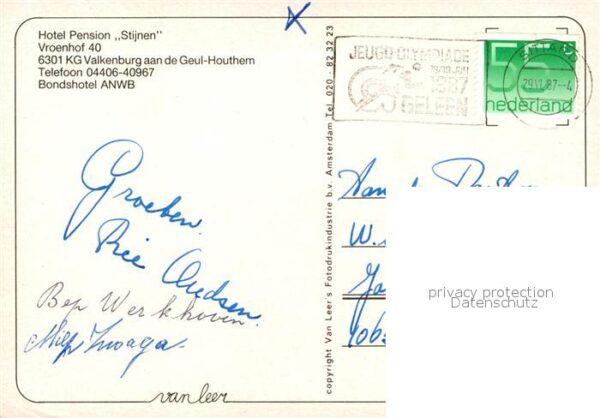 Hotel Pension „Stijnen”
Vroenhof 40
6301 KG Valkenburg aan de Geul-Houthem
Telefoon 04406-40967
Bondshotel ANWB
JEUGD OLYMPIADE
1987
GELEEN
SITTARD
29.VI.87.-4
55
nederland
Groeten.
Rie Oudsen.
Bep Werkhoven
Miep Zwaga.
copyright Van Leer's Fotodrukindustrie b.v. Amsterdam Tel 020 - 82 32 23
van leer
W.
1063
privacy protection
Datenschutz